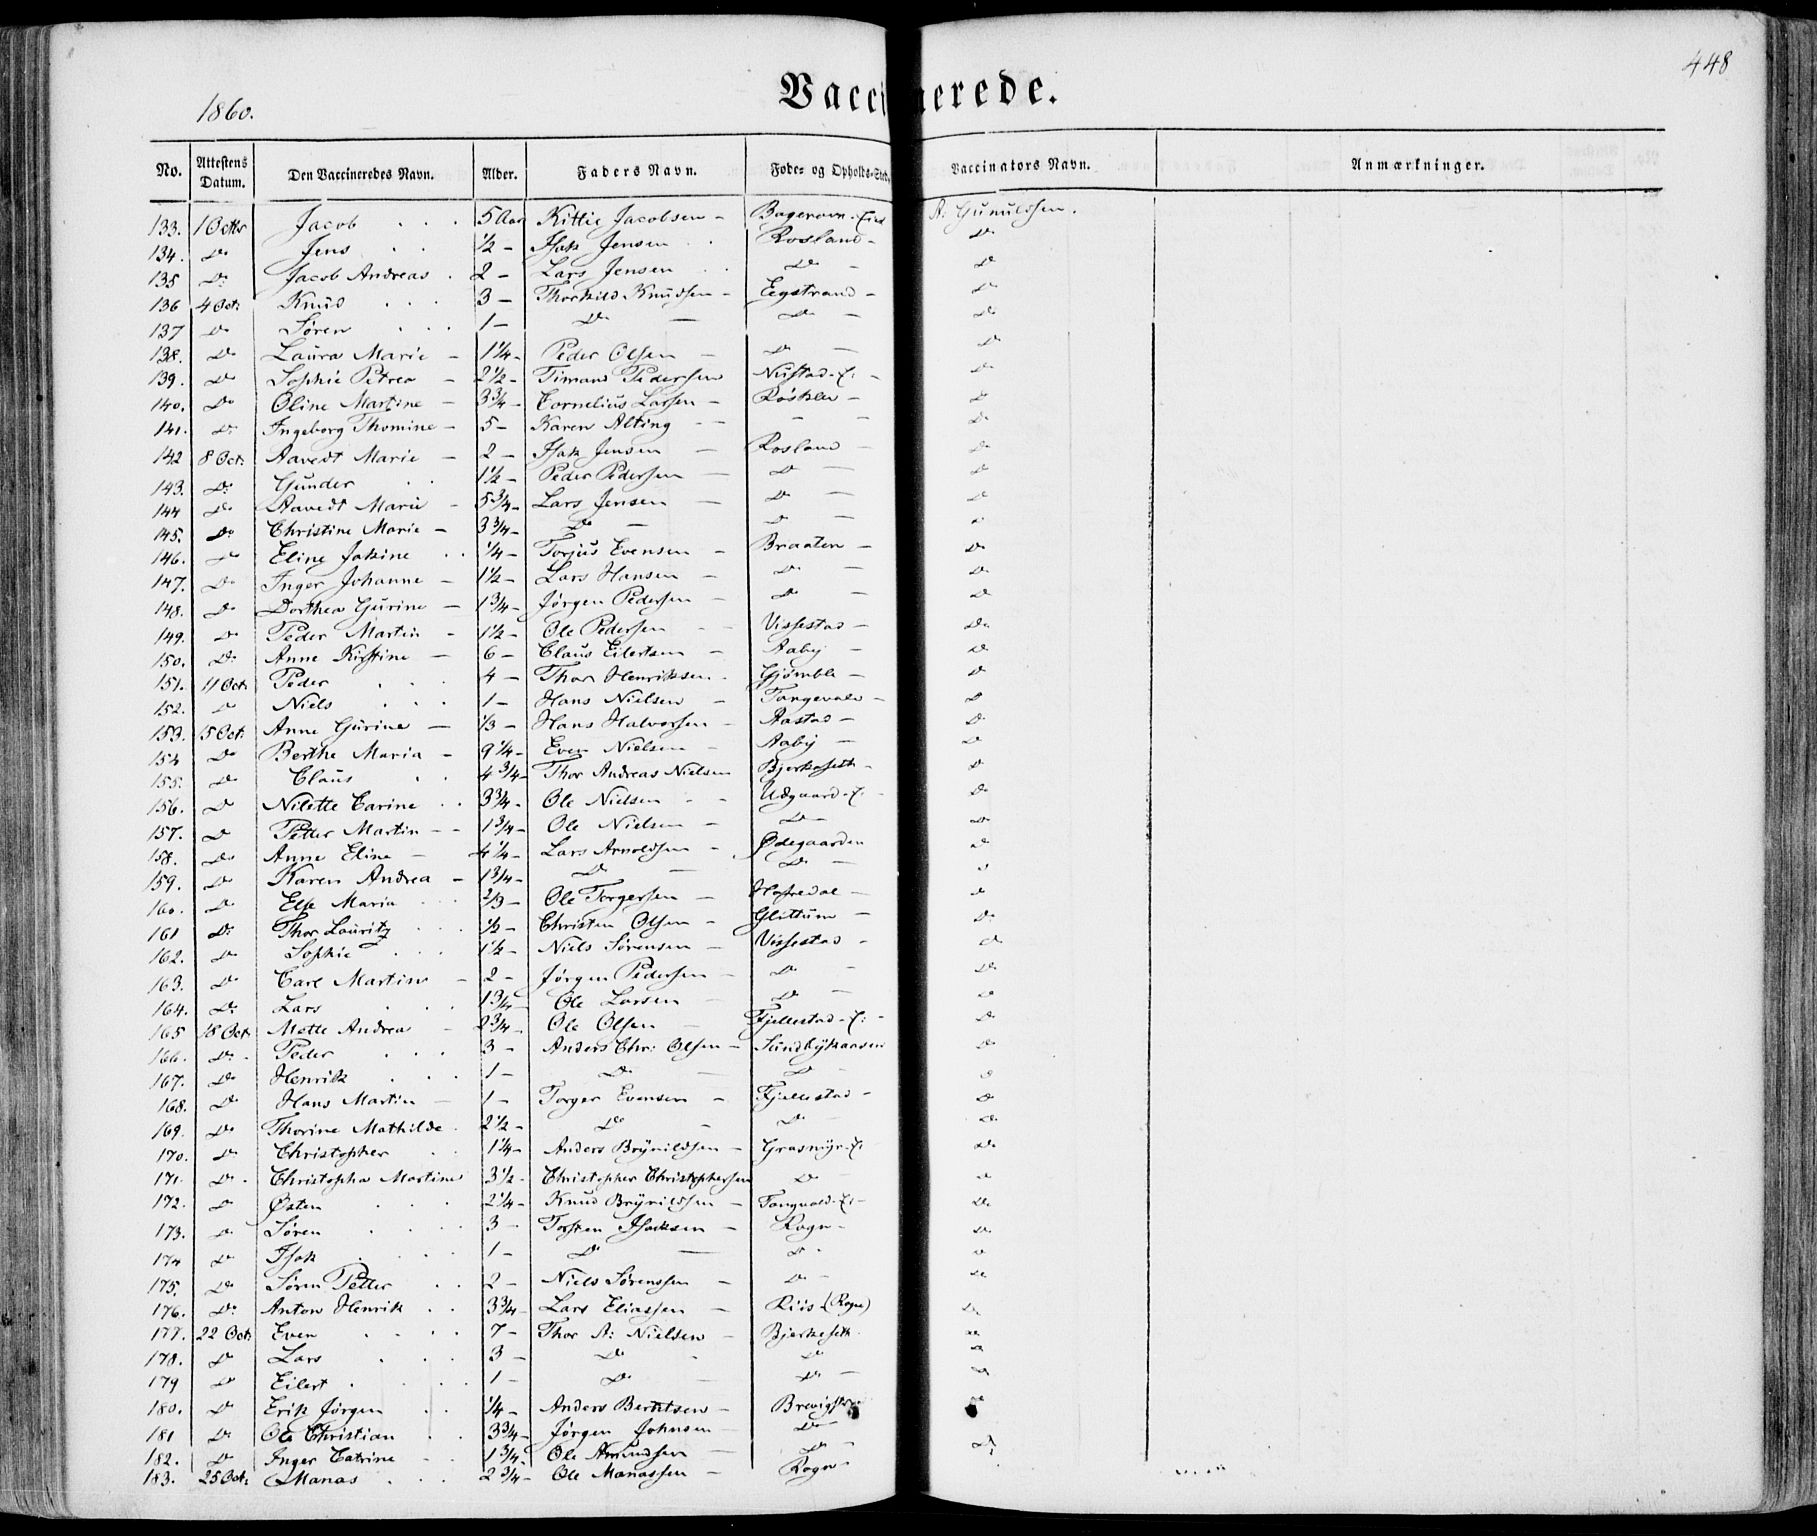 448
1860.
Vaccinerede.
No. Attestens Datum. Den Vaccineredes Navn. Alder. Faders Navn. Føde- og Opholds-Sted. Vaccinators Navn. Anmærkninger.
133. 1 Octbr Jacob 5 Aar Kittil Jacobsen - A: Gunulssen.
134. Do Jens 1/2 - Isak Jensen Rosland - Do
135 Do Jacob Andreas 2 - Lars Jensen Do - Do
136 4 Oct: Knud 3 - Thorkild Knudsen - Eegstrand - Do
137 Do Søren 1 - Do - Do - Do
138. Do Laura Marie - 1 1/4 - Peder Olsen - Do - Do
139. Do Sophie Petrea - 2 1/2 - Timand Pedersen Nustad-E: - Do
140. Do Oline Martine - 3 3/4 - Cornelius Larsen - Do
141. Do Ingeborg Thomine - 5 - Karen Alting - - - - Do
142 8 Oct: Aavedt Marie - 2 - Isak Jensen - Rosland - Do
143. Do Gunder 1 1/2 - Peder Pedersen Do - Do
144 Do Aavedt Marie - 5 3/4 - Lars Jensen - Do - Do
145. Do Christine Marie - 3 3/4 - Do - Do - Do
146. Do Eline Jakine 1/4 - Torjus Evensen - Braaten - Do
147. Do Inger Johanne - 1 1/2 - Lars Hansen - Do - Do
148. Do Dorthea Gurine - 1 3/4 - Jørgen Pedersen - Do - Do
149. Do Peder Martin - 1 1/2 - Ole Pedersen Vissestad - Do
150. Do Anne Kirstine - 6 - Claus Eilertsen - Aaby - Do
151. 11 Oct. Peder 4 - Thor Henriksen. Gjømble - Do
152. Do Niels 1 - Hans Nielsen - Tangevald - Do
153. 15 Oct: Anne Gurine - 1/3 - Hans Halvorsen - Aastad - Do
154 Do Berthe Maria - 9 1/4 - Even Nielsen - Aaby - Do
155. Do Claus 4 3/4 - Thor Andreas Nielsen Bjerkeseth - Do
156. Do Nilette Carine 3 3/4 - Ole Nielsen - - Udgaard-E: - Do
157. Do Petter Martin - - 1 3/4 - Ole Nielsen - Do - Do
158. Do Anne Eline - 4 1/4 - Lars Arnoldsen - Ødegaarden Do
159. Do Karen Andrea - 1 3/4 - Do - Do - Do
160. Do Else Maria 2/3 - Ole Torgersen - Do
161 Do Thor Lauritz 1/2 - Christen Olsen - Glittum - Do
162. Do Sophie 1 1/2 - Niels Sørensen - Vissestad - Do
163. Do Carl Martin - 2 - Jørgen Pedersen - Do - Do
164. Do Lars 1 3/4 - Ole Larsen - Do - Do
165 18 Oct Mette Andrea - 2 3/4 - Ole Olsen - Fjellestad-E: - Do
166. Do Peder 3 - Anders Chr: Olsen - Sundbykaasen Do
167. Do Henrik 1 - Do - Do - Do
168. Do Hans Martin - 1 - Torger Evensen - Fjellestad - Do
169. Do Thorine Mathilde 2 1/2 - Do - Do - Do
170. Do Christopher 1 1/4 - Anders Brynildsen - Grasmyr-E: Do
171. Do Christopha Martine 3 1/2 - Christopher Christophersen Do Do
172. Do Østen 2 1/4 - Knud Brynildsen - Tangvald-E: - Do
173. Do Søren 3 - Torsten Isaksen - Rogn - Do
174 Do Isak 1 - Do - Do - Do
175. Do Søren Petter 2 - Niels Sørenssen - Do - Do
176. Do Anton Henrik 3 3/4 - Lars Eliassen - Riis (Rogn) Do
177. 22 Oct: Even 7 - Thor A: Nielsen - Bjerkeseth. Do
178. Do Lars 3 - Do Do Do
179 Do Eilert 1 - Do - Do - Do
180. Do Erik Jørgen 1/4 - Anders Berntsen - Do
181 Do Ole Christian 3 3/4 - Jørgen Johnsen - Do
182. Do Inger Catrine 1 3/4 - Ole Amundsen - Do - Do
183. 25 Oct: Manas 2 3/4 - Ole Manassen - Rogn -